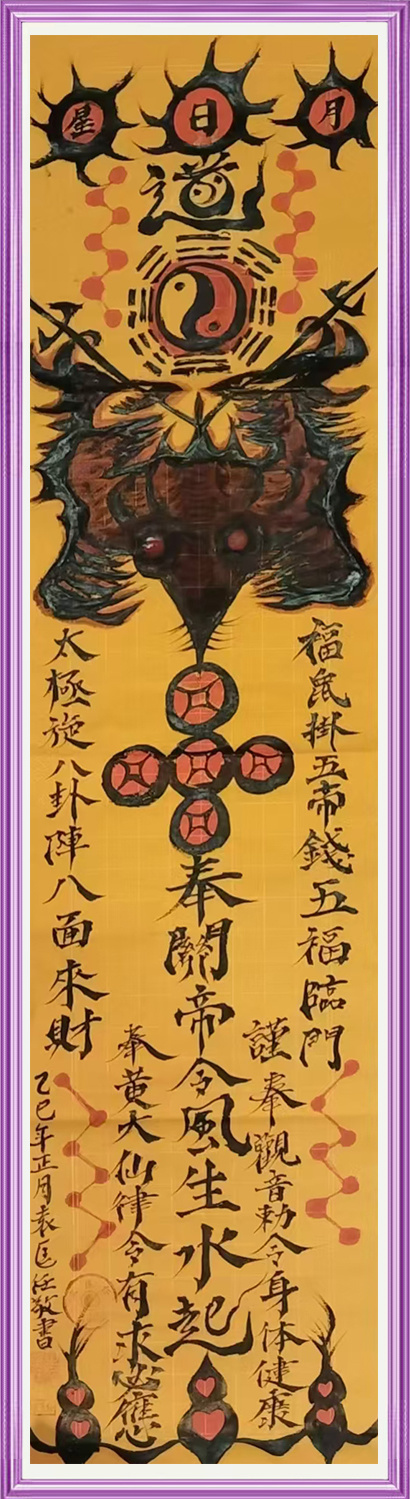 星 日 月
道
福鼠掛五帝錢五福臨門
太極旋八卦陣八面來財
奉關帝令風生水起
謹奉觀音勅令身体健康
奉黃大仙律令有求必應
乙巳年正月袁匡任敬書